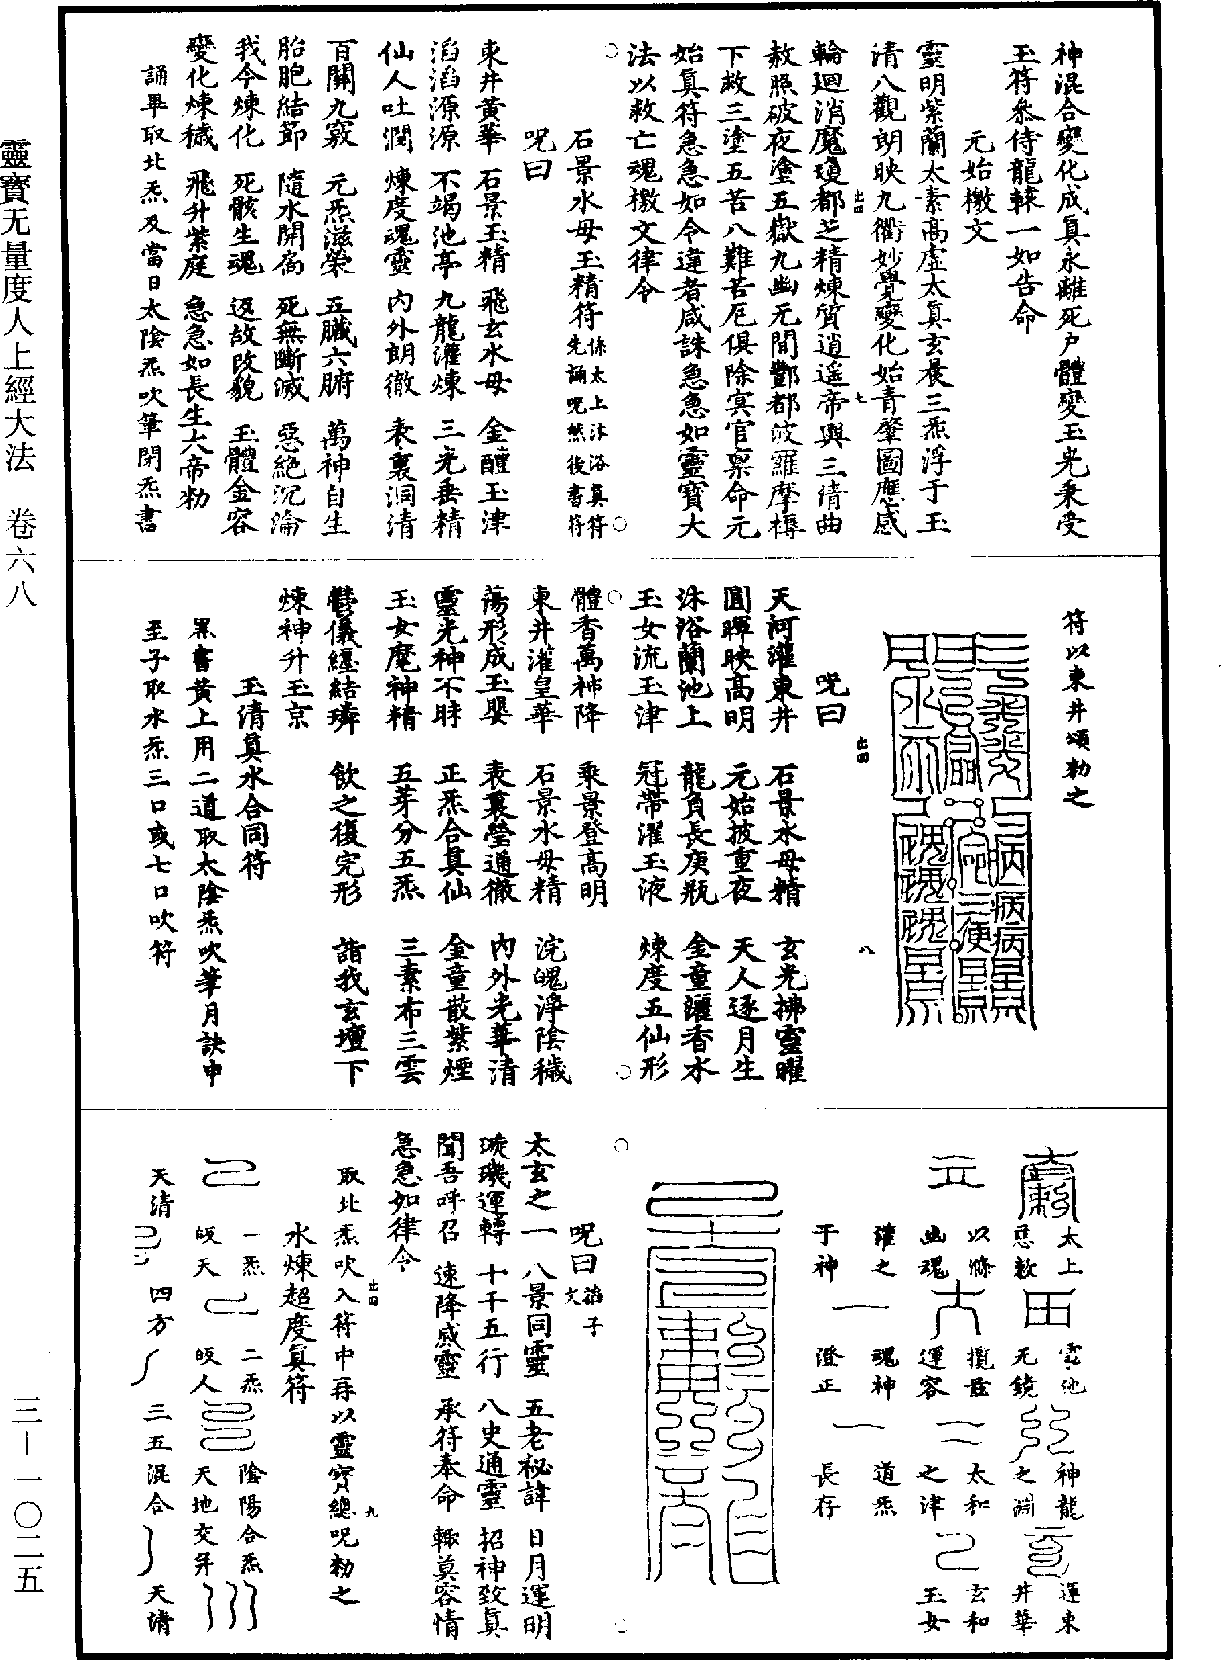 神混合變化成眞永離死戶體變玉光秉受
玉符叅侍龍輧一如告命
元始檄文
靈明紫蘭太素髙虛太眞玄晨三炁浮于玉
清八觀朗映九衢妙覺變化始青肇圖應感
輪迴消魔瓊都芝精煉質逍遥帝輿三清曲
赦照破夜塗五嶽九幽无間酆都波羅摩樿
下救三塗五苦八難苦厄俱除冥官稟命元
始眞符急急如令違者咸誅急急如靈寶大
法以救亡魂檄文律令
石景水母玉精符 係太上沐浴眞符
先誦呪然後書符
呪曰
東井黃華 石景玉精 飛玄水母 金醴玉津
滔滔源源 不竭池亭 九龍灌煉 三光垂精
仙人吐潤 煉度魂靈 內外朗徹 表裏洞清
百關九竅 元炁滋榮 五臟六腑 萬神自生
胎胞結節 隨水開扃 死無斷滅 惡絕沉淪
我今煉化 死骸生魂 返故改貌 玉體金容
變化煉穢 飛升紫庭 急急如長生大帝勑
誦畢取北炁及當日太陰炁吹筆閉炁書
符以東井頌勑之
呪曰
天河灌東井 石景水母精 玄光拂靈曜
圓暉映髙明 元始披重夜 天人逐月生
沐浴蘭池上 龍負長庚瓶 金童灑香水
玉女流玉津 冠帶濯玉液 煉度五仙形
體香萬神降 乘景登高明
東井灌皇華 石景水母精 浣魄淨陰穢
蕩形成玉嬰 表裏瑩通徹 內外光華清
靈光神不眛 正炁合眞仙 金童散紫煙
玉女魔神精 五芽分五炁 三素布三雲
鬱儀纏結璘 飲之復完形 詣我玄壇下
煉神升玉京
玉清眞水合同符
黑書黃上用二道取太陰炁吹筆月訣申
至子取水炁三口或七口吹符
太上 靈池 神龍 運東
惠敕 无鏡 之淵 井華
以滌 攬蓝 太和 玄和
幽魂 運容 之津 玉女
灌之 魂神 道炁
于神 澄正 長存
呪曰 諂子文
太玄之一 八景同靈 五老祕諱 日月運明
璇璣運轉 十千五行 八史通靈 招神致眞
聞吾呼召 速降感靈 承符奉命 輙奠容情
急急如律令
取北炁吹入符中再以靈寶總呪勑之
水煉超度眞符
一炁 二炁 陰陽合炁
皈天 皈人 天地交幷
天清 四方 三五混合 天清
靈寶无量度人上經大法 卷六八
三—一〇二五